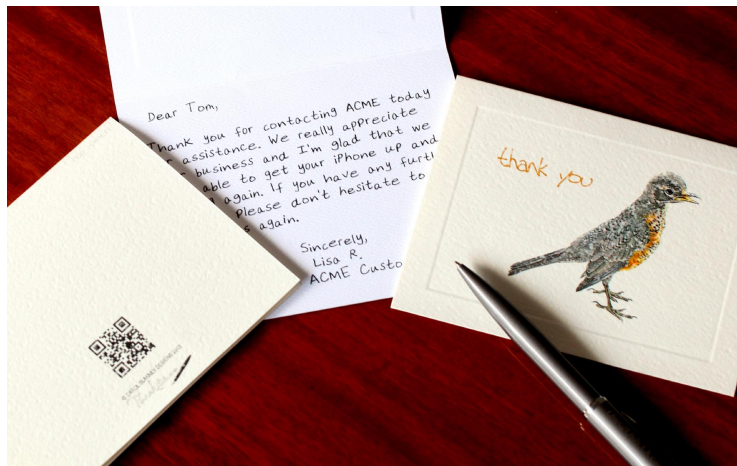 Dear Tom,
Thank you for contacting ACME today
assistance. We really appreciate
business and I'm glad that we
able to get your iPhone up and
again. If you have any
Please don't hesitate to
again.
Sincerely,
Lisa R.
ACME
thank you